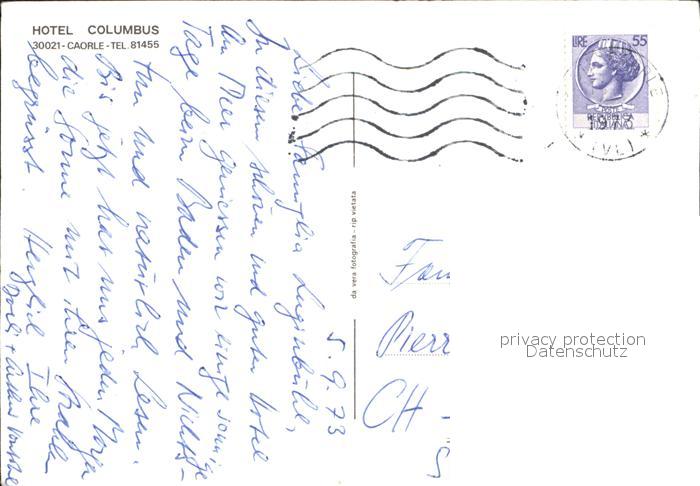 HOTEL COLUMBUS
30021 - CAORLE - TEL. 81455
5. 9. 73
Liebe Famiglia Luginbühl,
In diesem schönen und guten Hotel
am Meer geniessen wir einige sonnige
Tage beim Baden und Nichts-
tun und natürlich Lesen.
Bis jetzt hat uns jeden Morgen
die Sonne mit ihren Strahlen
begrüsst. Herzlich Ihre
da vera fotografia - rip. vietata
LIRE 55
(VE)
Fam
Pierr
CH -
privacy protection
Datenschutz